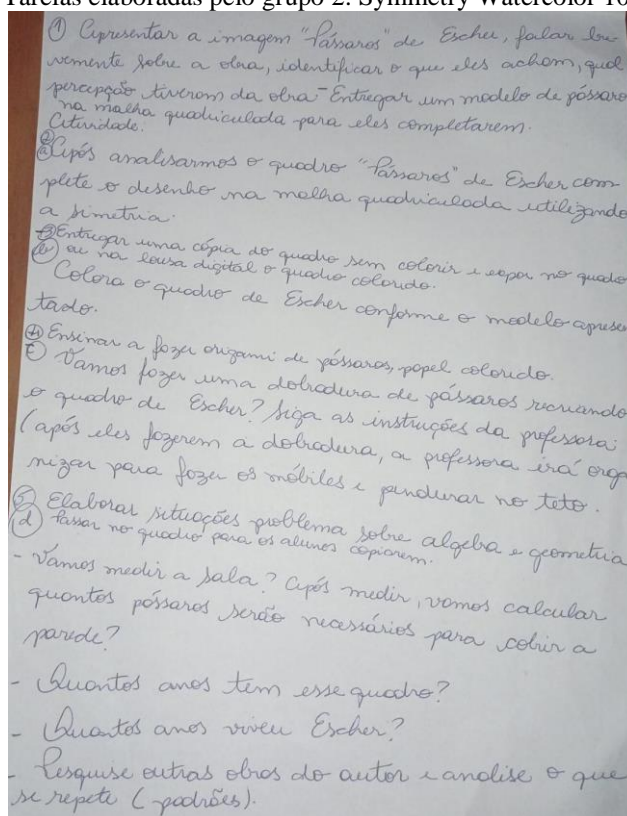 Tarefas elaboradas pelo grupo 2: Symmetry Watercolor 10
① Apresentar a imagem "Pássaros" de Escher, falar bre-
vemente sobre a obra, identificar o que eles acham, qual
percepção tiveram da obra - Entregar um modelo de pássaro
na malha quadriculada para eles completarem.
Atividade:
② a) Após analisarmos o quadro "Pássaros" de Escher com-
plete o desenho na malha quadriculada utilizando
a simetria.
③ Entregar uma cópia do quadro sem colorir e expor no quadro
b) ou na lousa digital o quadro colorido.
Colora o quadro de Escher conforme o modelo apresen
tado.
④ Ensinar a fazer origami de pássaros, papel colorido.
c) Vamos fazer uma dobradura de pássaros recriando
o quadro de Escher? Siga as instruções da professora:
(após eles fazerem a dobradura, a professora irá orga
nizar para fazer os móbiles e pendurar no teto.
⑤ Elaborar situações problema sobre algebra e geometria
d) Passar no quadro para os alunos copiarem.
- Vamos medir a sala? Após medir, vamos calcular
quantos pássaros serão necessários para cobrir a
parede?
- Quantos anos tem esse quadro?
- Quantos anos viveu Escher?
- Pesquise outras obras do autor e analise o que
se repete (padrões).